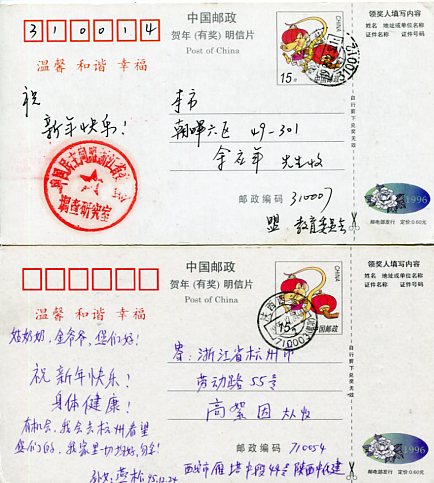 310014
中国邮政
贺年（有奖）明信片
Post of China
温馨 和谐 幸福
祝
新年快乐！
CHINA
15分
本市
朝晖六区 49-301
余 年 先生收
邮政编码 310007
盟 教育委员会
调查研究室
领奖人填写内容
姓名 地址或单位名称
证件名称 证件号码
自行剪下兑奖无效
1996
邮电部发行 定价:0.60元
中国邮政
贺年（有奖）明信片
Post of China
温馨 和谐 幸福
CHINA
15分
中国邮政
710003
好奶奶，金爷爷，您们好！
祝 新年快乐！
身体健康！
有机会，我会去杭州看望
您们的，我家里一切好，勿念！
95.12.24
寄：浙江省杭州市
劳动路55号
高 因 大人收
邮政编码 710054
西安市雁塔中段44号 陕西中
领奖人填写内容
姓名 地址或单位名称
证件名称 证件号码
自行剪下兑奖无效
1996
邮电部发行 定价:0.60元